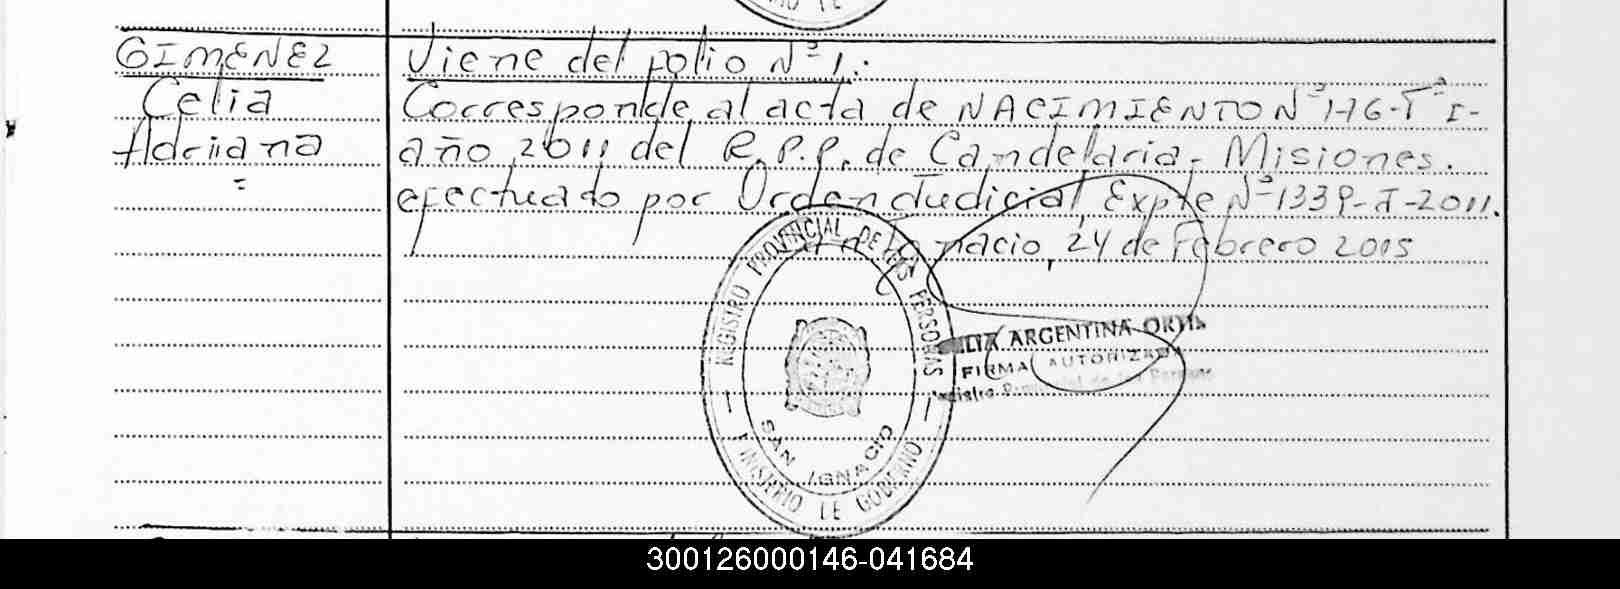 GIMENEZ
Celia
Adriana
=
Viene del folio Nº 1.:
Corresponde al acta de NACIMIENTO Nº 176-Tº I-
año 2011 del R.P.P. de Candelaria- Misiones.
efectuado por Orden Judicial, Expte Nº 1339-I-2011.
San Ignacio, 24 de Febrero 2015
REGISTRO PROVINCIAL DE LAS PERSONAS
SAN IGNACIO
MINISTERIO DE GOBIERNO
ARGENTINA
FIRMA AUTORIZADA
Registro Provincial de las Personas
300126000146-041684